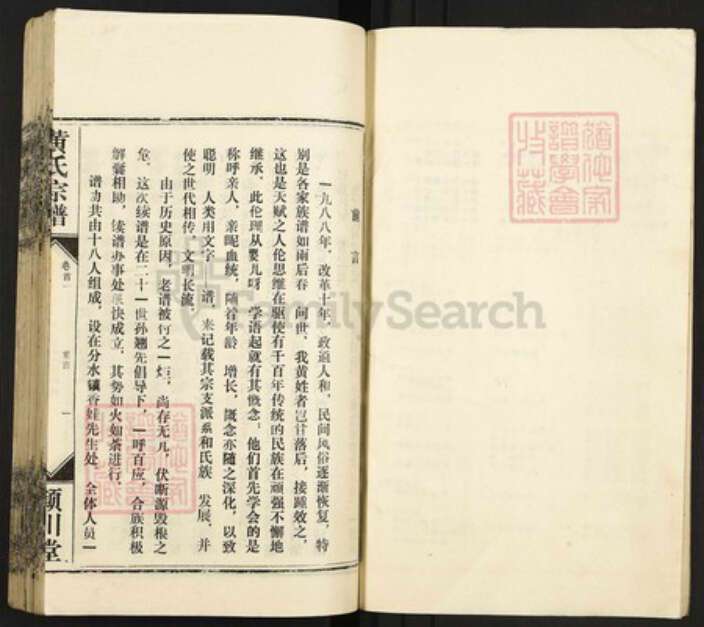 言
一九八八年，改革十年，政通人和，民间风俗逐渐恢复，特
别是各家族谱如雨后春 问世，我黄姓者岂甘落后，接踵效之，
这也是天赋之人伦思维在驱使有千百年传统的民族在顽强不懈地
继承，此伦理从婴儿呀 学语起就有其概念：他们首先学会的是
称呼亲人，亲昵血统，随着年龄 增长，概念亦随之深化，以致
聪明 人类用文字 谱，来记载其宗支派系和氏族 发展，并
使之世代相传，文明长流。
由于历史原因，老谱被付之一炬，尚存无几，伏断源毁根之
危，这次续谱是在二十一世孙翘先倡导下，一呼百应，合族积极
解囊相助，续谱办事处很快成立，其势如火如荼进行。
谱 共由十八人组成，设在分水镇香娃先生处，全体人员一
黄氏宗谱
卷首
一
颍川堂
FamilySearch
谱学会
收藏